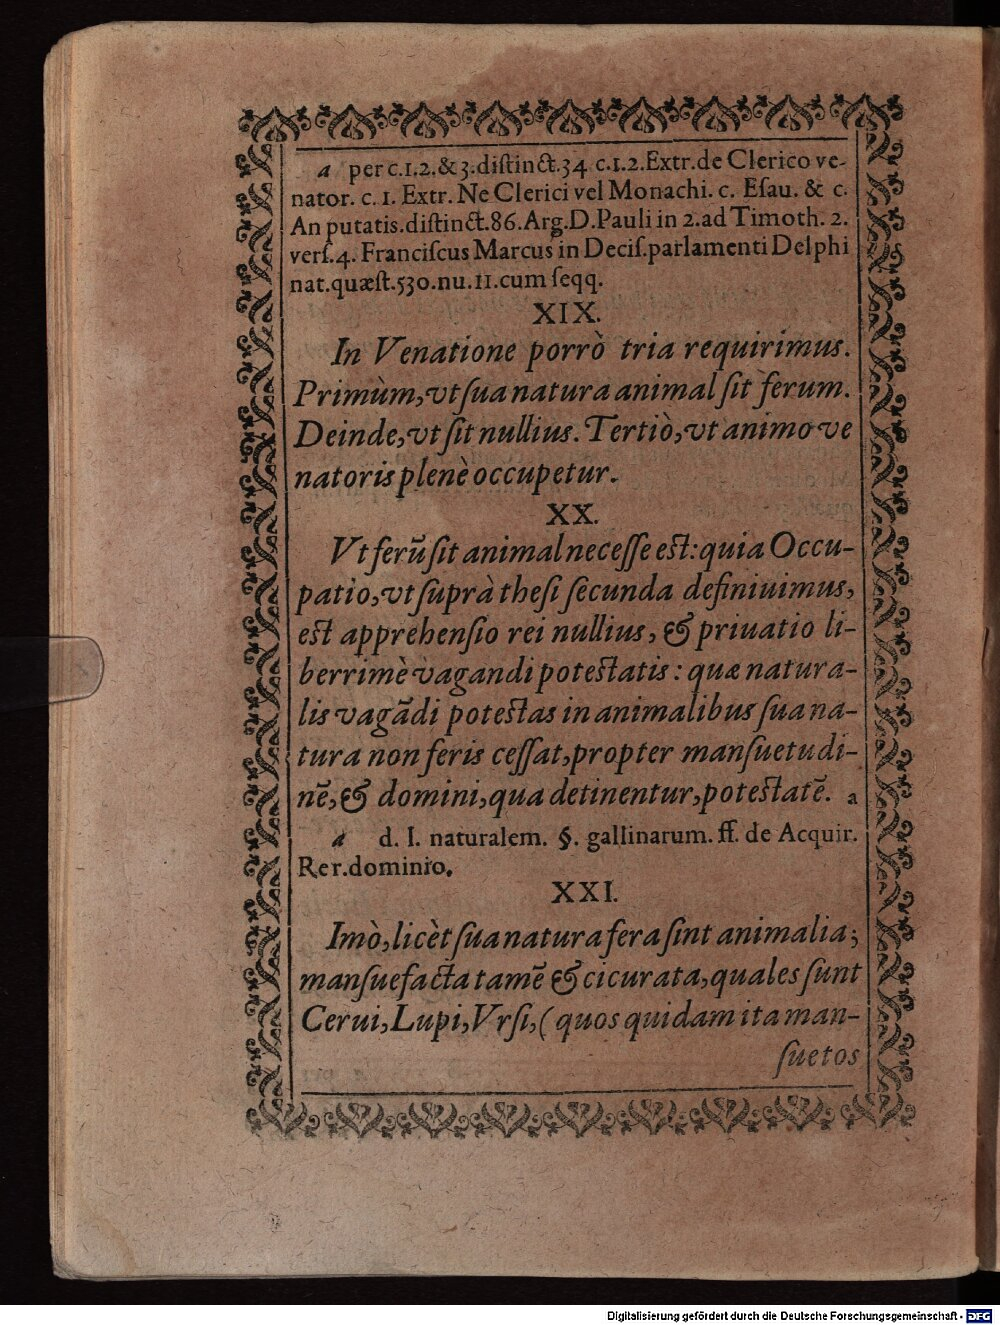 a per c.1.2.&3.distinct.34 c.1.2.Extr.de Clerico ve-
nator. c. 1. Extr. Ne Clerici vel Monachi. c. Esau. & c.
An putatis.distinct.86.Arg.D.Pauli in 2.ad Timoth. 2.
vers.4. Franciscus Marcus in Decis.parlamenti Delphi
nat.quæst.530.nu.11.cum seqq.
XIX.
In Venatione porrò tria requirimus.
Primùm,vt sua natura animal sit ferum.
Deinde,vt sit nullius. Tertiò,vt animo ve
natoris plenè occupetur.
XX.
Vt ferũ sit animal necesse est:quia Occu-
patio,vt suprà thesi secunda definiuimus,
est apprehensio rei nullius, & priuatio li-
berrimè vagandi potestatis: quæ natura-
lis vagãdi potestas in animalibus sua na-
tura non feris cessat,propter mansuetudi-
nẽ,& domini,qua detinentur,potestatẽ. a
a d. l. naturalem. §. gallinarum. ff. de Acquir.
Rer.dominio.
XXI.
Imò,licèt sua natura fera sint animalia;
mansuefacta tamẽ & cicurata,quales sunt
Cerui,Lupi,Vrsi,(quos quidam ita man-
suetos
Digitalisierung gefördert durch die Deutsche Forschungsgemeinschaft - DFG